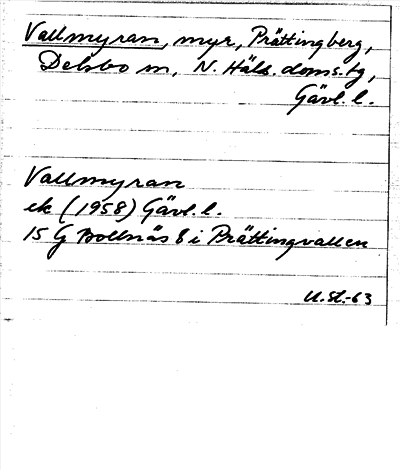 Vallmyran, myr, Prättingberg,
Delsbo sn, N. Häls. doms. tg,
Gävl. l.
Vallmyran
ek (1958) Gävl. l.
15 G Bollnäs 8 i Prättingvallen
U.St.-63